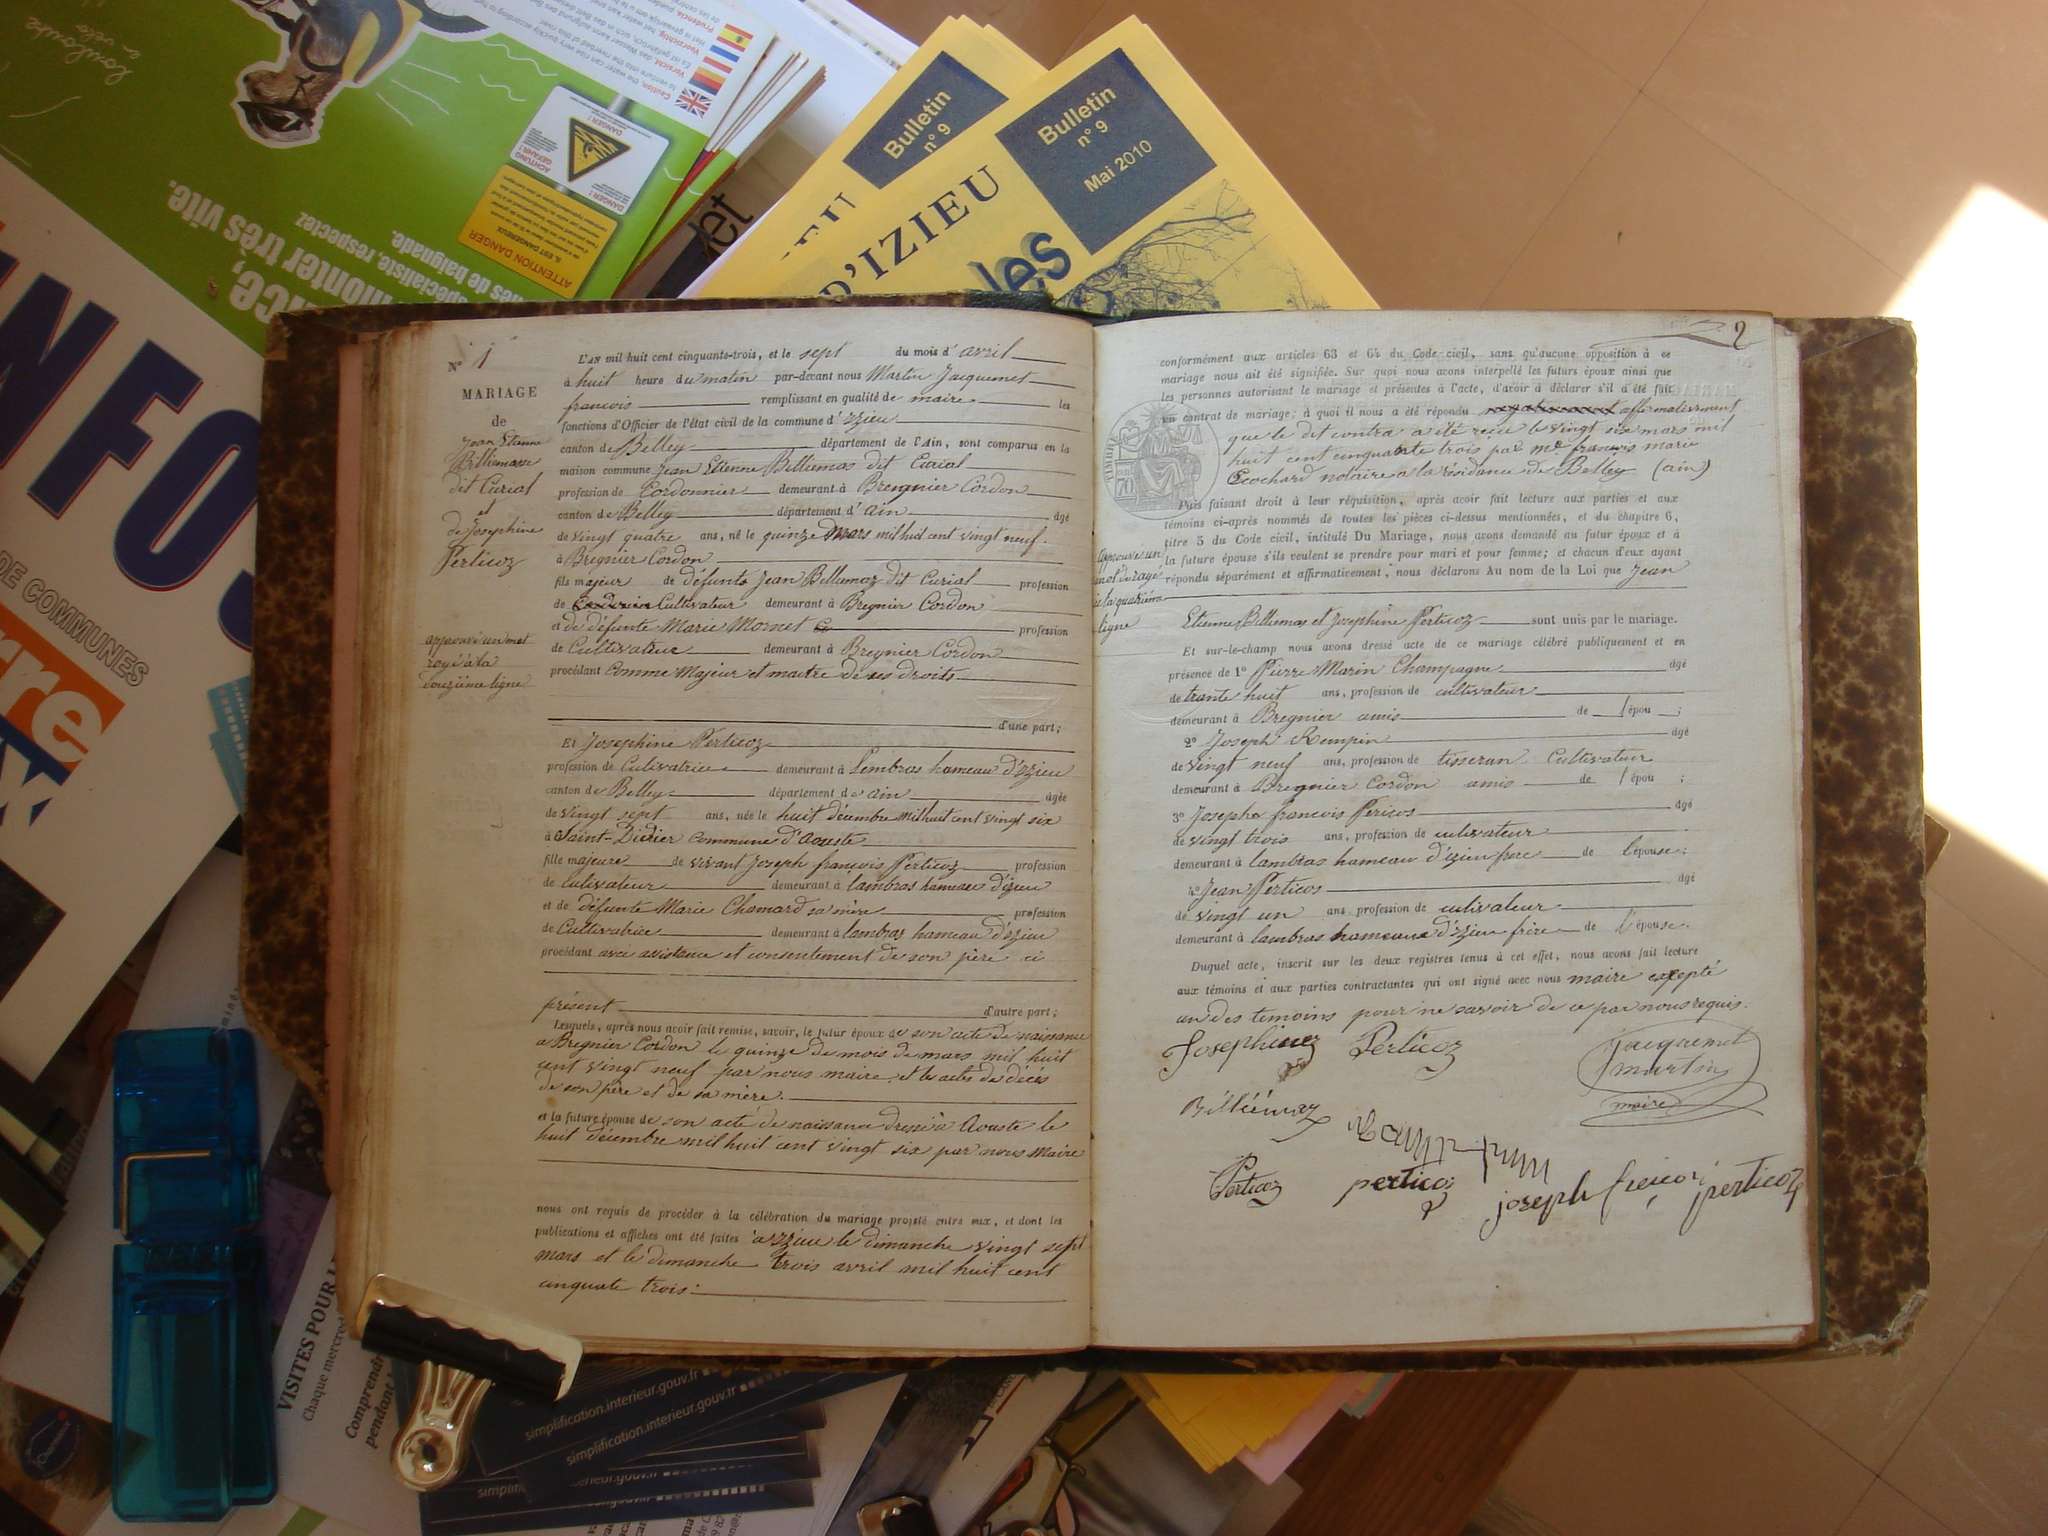 Toulouse
en vélo
Caution, the water can rise very quickly according to the
INFOS
DE COMMUNES
monter très vite.
spécialiste, respectez
nes de baignade.
DANGER !
ACHTUNG
GEFAHR !
ATTENTION DANGER
Bulletin
n° 9
Bulletin
n° 9
Mai 2010
D'IZIEU
les
N° 1
MARIAGE
de
Jean Etienne
Billiemasse
dit Curial
et
de Josephine
Perticoz
approuvé un mot
rayé à la
douzième ligne
L'AN mil huit cent cinquante-trois, et le sept du mois d'avril
à huit heure du matin par-devant nous Martin Jacquemet
francois remplissant en qualité de maire les
fonctions d'Officier de l'état civil de la commune d'izieu
canton de Belley département de l'Ain, sont comparus en la
maison commune Jean Etienne Billiemas dit Curial
profession de Cordonnier demeurant à Bregnier Cordon
canton de Belley département d'Ain âgé
de vingt quatre ans, né le quinze Mars mil huit cent vingt neuf
à Bregnier Cordon
fils majeur de défunts Jean Billiemaz dit Curial profession
de Cultivateur demeurant à Bregnier Cordon
et de défunte Marie Mornet profession
de Cultivateur demeurant à Bregnier Cordon
procédant Comme Majeur et maitre de ses droits
d'une part;
Et Josephine Perticoz
profession de Cultivatrice demeurant à Lambras hameau d'izieu
canton de Belley département de ain âgée
de vingt sept ans, née le huit décembre mil huit cent vingt six
à Saint-Didier Commune d'Aouste
fille majeure de vivant Joseph françois Perticoz profession
de Cultivateur demeurant à lambras hameau d'izieu
et de défunte Marie Chamard sa mère profession
de Cultivatrice demeurant à lambras hameau d'izieu
procédant avec assistance et consentement de son père ci
présent d'autre part;
Lesquels, après nous avoir fait remise, savoir, le futur époux de son acte de naissance
a Bregnier Cordon le quinze de mois de mars mil huit
cent vingt neuf par nous maire, et les actes de décès
de son père et de sa mère.
et la future épouse de son acte de naissance dressé à Aouste le
huit décembre mil huit cent vingt six par nous Maire
nous ont requis de procéder à la célébration du mariage projeté entre eux, et dont les
publications et affiches ont été faites à izieu le dimanche vingt sept
mars et le dimanche trois avril mil huit cent
cinquate trois.
2
conformément aux articles 63 et 64 du Code civil, sans qu'aucune opposition à ce
mariage nous ait été signifiée. Sur quoi nous avons interpellé les futurs époux ainsi que
les personnes autorisant le mariage et présentes à l'acte, d'avoir à déclarer s'il a été fait
un contrat de mariage; à quoi il nous a été répondu negativement affirmativement
que le dit contra a été reçu le vingt six mars mil
huit cent cinquante trois par me françois marie
Cochard notaire a la résidance de Belley (ain)
TIMBRE
70
Puis faisant droit à leur réquisition, après avoir fait lecture aux parties et aux
témoins ci-après nommés de toutes les pièces ci-dessus mentionnées, et du chapitre 6,
titre 5 du Code civil, intitulé Du Mariage, nous avons demandé au futur époux et à
la future épouse s'ils veulent se prendre pour mari et pour femme; et chacun d'eux ayant
répondu séparément et affirmativement, nous déclarons Au nom de la Loi que Jean
approuvé un
mot de rayé
à la quatrième
ligne
Etienne Billiemas et Josephine Perticoz sont unis par le mariage.
Et sur-le-champ nous avons dressé acte de ce mariage célébré publiquement et en
présence de 1° Pierre Marin Champagne âgé
de trante huit ans, profession de cultivateur
demeurant à Bregnier amis de l'épou ;
2° Joseph Rempin âgé
de vingt neuf ans, profession de tisseran Cultivateur
demeurant à Bregnier Cordon amis de l'épou ;
3° Josephe françois Perticos âgé
de vingt trois ans, profession de cultivateur
demeurant à lambras hameau d'izieu frere de l'épouse;
4° Jean Perticos âgé
de vingt un ans profession de cultivateur
demeurant à lambras hameau d'izieu frère de l'épouse.
Duquel acte, inscrit sur les deux registres tenus à cet effet, nous avons fait lecture
aux témoins et aux parties contractantes qui ont signé avec nous maire excepté
un des temoins pour ne savoir de ce par nous requis.
Josephine Perticoz
jacquemet
martin
maire
Billiémaz
Perticoz perticos joseph freçoi perticoz
VISITES POUR
Chaque mercredi
Comprendre
pendant
simplification.interieur.gouv.fr
simplification.interieur.gouv.fr